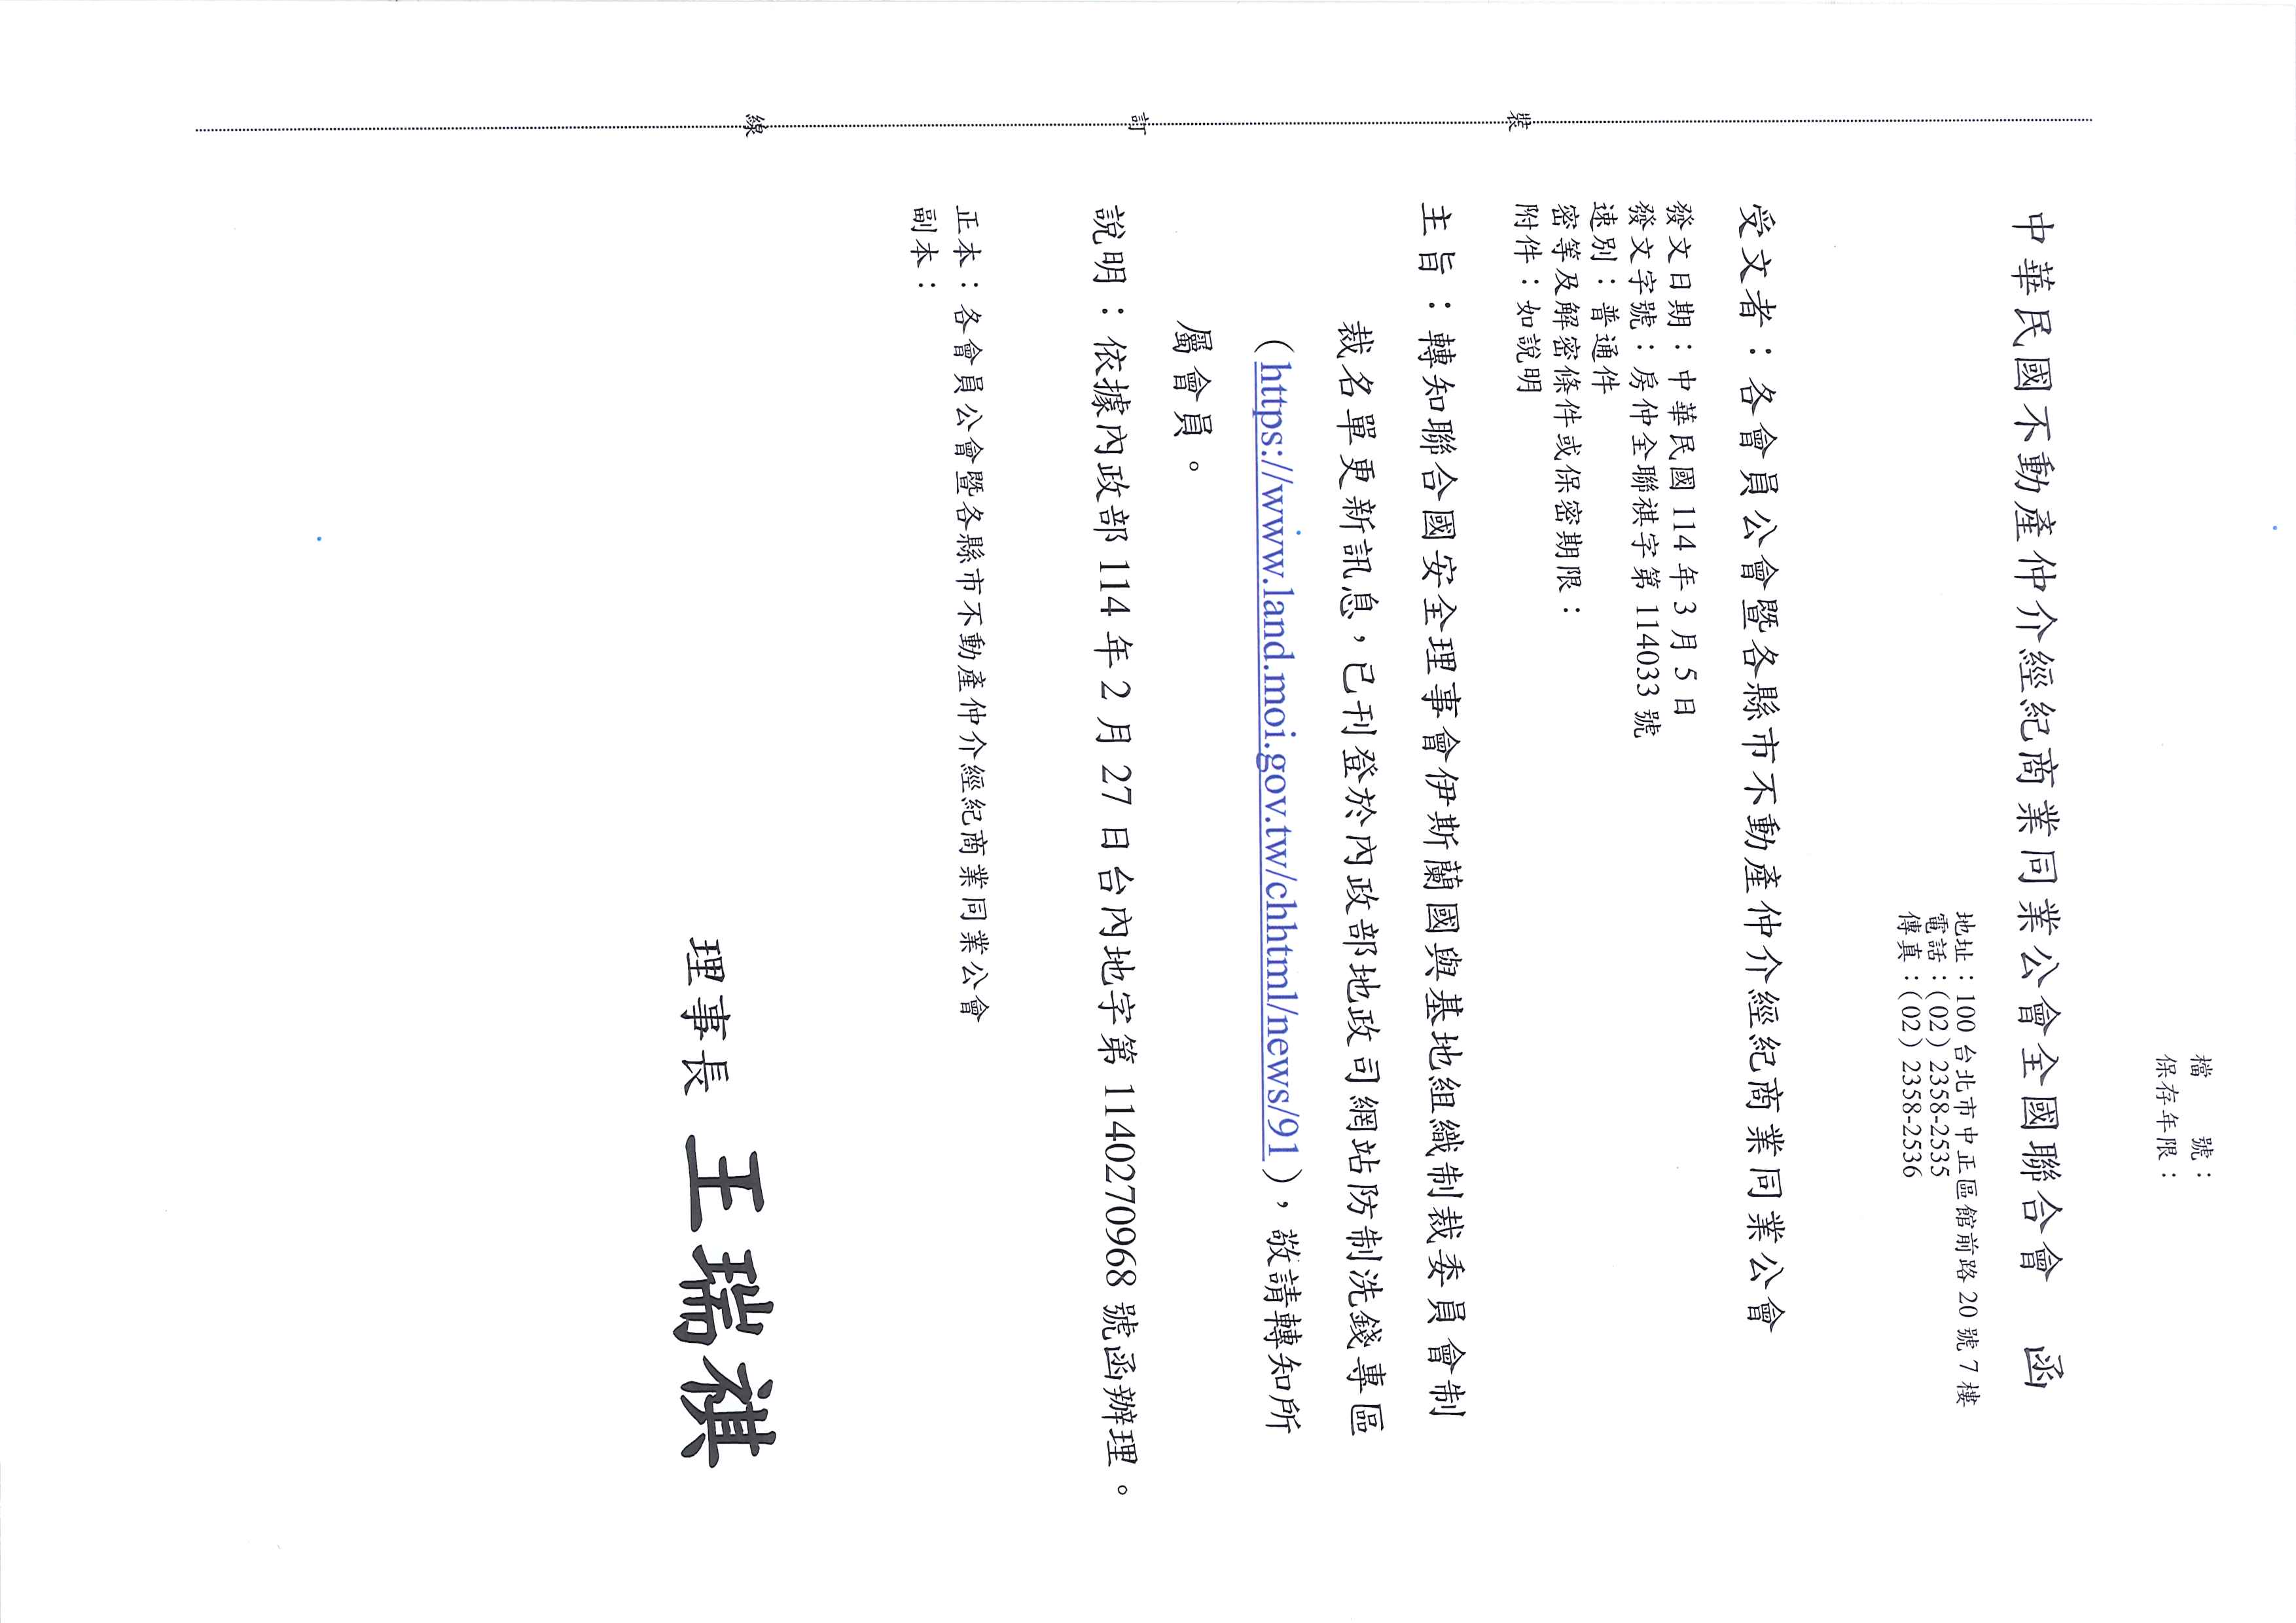 檔　　號：
保存年限：
中華民國不動產仲介經紀商業同業公會全國聯合會　函
地址：100 台北市中正區館前路 20 號 7 樓
電話：(02) 2358-2535
傳真：(02) 2358-2536
受文者：各會員公會暨各縣市不動產仲介經紀商業同業公會
發文日期：中華民國 114 年 3 月 5 日
發文字號：房仲全聯祺字第 114033 號
速別：普通件
密等及解密條件或保密期限：
附件：如說明
主旨：轉知聯合國安全理事會伊斯蘭國與基地組織制裁委員會制
裁名單更新訊息，已刊登於內政部地政司網站防制洗錢專區
（https://www.land.moi.gov.tw/chhtml/news/91），敬請轉知所
屬會員。
說明：依據內政部 114 年 2 月 27 日台內地字第 1140270968 號函辦理。
正本：各會員公會暨各縣市不動產仲介經紀商業同業公會
副本：
理事長 王瑞祺
裝
訂
線